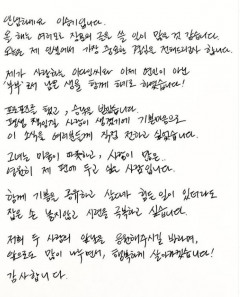 안녕하세요 이승기입니다.
올 해는 여러모로 장문의 글을 쓸 일이 많은 것 같습니다.
오늘은 제 인생에서 가장 중요한 결심을 전해드리려 합니다.
제가 사랑하는 이다인씨와 이제 연인이 아닌
'부부'로서 남은 생을 함께 하기로 하였습니다!
프로포즈를 했고, 승낙을 받았습니다.
평생 책임질 사람이 생겼기에 기쁜마음으로
이 소식을 여러분들께 직접 전하고 싶었습니다.
그녀는 마음이 따뜻하고, 사랑이 많은
영원히 제 편에 두고 싶은 사람입니다.
함께 기쁨을 공유하고 살다가 힘든 일이 있더라도
잡은 손 놓지않고 시련을 극복하고 싶습니다.
저희 두 사람의 앞날을 응원해주시길 바라며,
앞으로도 많이 나누면서, 행복하게 살아가겠습니다!
감사합니다.